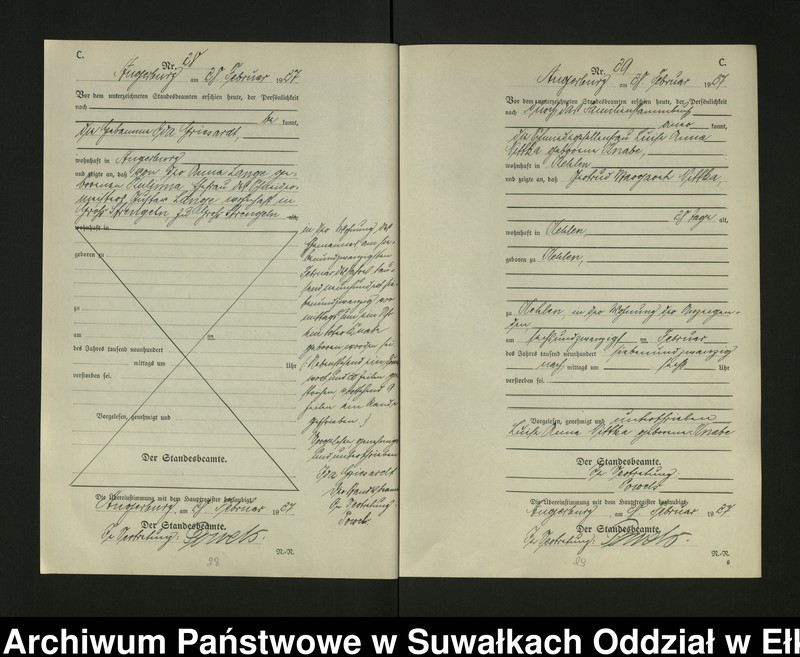 C.
Nr. 28
Angerburg am 28 Februar 1927
Vor dem unterzeichneten Standesbeamten erschien heute, der Persönlichkeit
nach
be kannt,
die Hebamme Ida
wohnhaft in Angerburg
und zeigte an, daß von der Anna Lange ge-
borenen Ehefrau des
meisters Gustav Lange wohnhaft in
Groß Strengeln, zu Groß Strengeln alt,
wohnhaft in
geboren zu
zu
am ten
des Jahres tausend neunhundert
mittags um Uhr
verstorben sei.
Vorgelesen, genehmigt und
Der Standesbeamte.
in der Wohnung des
am sie-
benundzwanzigsten
Februar des Jahres tau-
send neunhundert sie-
benundzwanzig vor
mittags um ein Uhr
ein toter Knabe
geboren worden sei
zeilen am Rande
geschrieben.
Vorgelesen genehmigt
und unterschrieben
Ida
Der Standesbeamte
In Vertretung
Die Übereinstimmung mit dem Hauptregister beglaubigt
Angerburg am 28 Februar 1927
Der Standesbeamte.
In Vertretung:
N.-R.
28
C.
Nr. 29
Angerburg am 28 Februar 1927
Vor dem unterzeichneten Standesbeamten erschien heute, der Persönlichkeit
nach durch das Familienstammbuch
aner kannt,
die Luise Anna
Nittka geborene Knabe,
wohnhaft in Kehlen
und zeigte an, daß Gertrud Margarete Nittka,
28 Tage alt,
wohnhaft in Kehlen,
geboren zu Kehlen,
zu Kehlen, in der Wohnung der Anzeigen-
den,
am sechsundzwanzigsten Februar
des Jahres tausend neunhundert siebenundzwanzig
nach mittags um sechs Uhr
verstorben sei.
Vorgelesen, genehmigt und unterschrieben
Luise Anna Nittka geborene Knabe
Der Standesbeamte.
In Vertretung.
Die Übereinstimmung mit dem Hauptregister beglaubigt
Angerburg am 28 Februar 1927
Der Standesbeamte.
In Vertretung:
N.-R.
6
29
Archiwum Państwowe w Suwałkach Oddział w Ełk